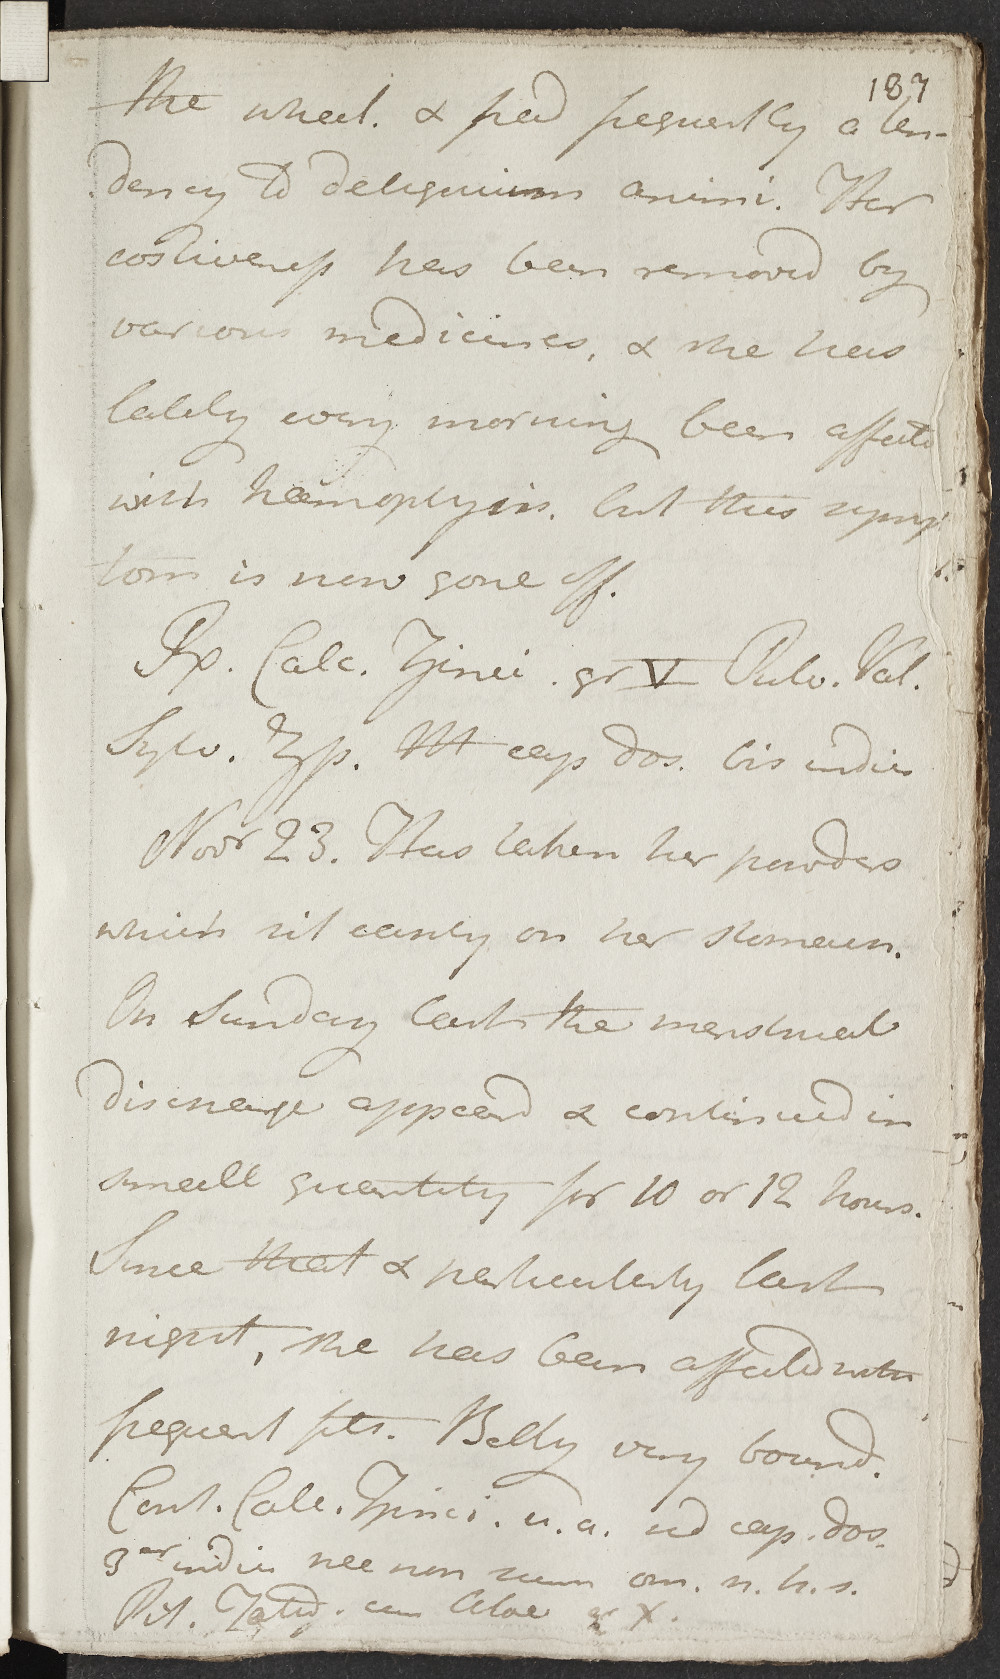 187
the wheel. & had frequently a ten-
dency to deliquium animi. Her
costiveness has been removed by
various medicines, & she has
lately every morning been affected
with haemoptysis. but this symp
tom is now gone off.
Rx. Calc. Zinci. gr V Pulv. Val.
Sylv. ʒſs. M cap dos. bis indies
Novr 23. Has taken her powders
which sit easily on her stomach.
On Sunday last the menstrual
discharge appeard & continued in
small quantity for 10 or 12 hours.
Since that & particularly last
night, she has been affected with
frequent fits. Belly very bound.
Cont. Calc. Zinci. u. a. sed cap. dos.
3er indies nec non sum om. n. h. s.
Pil. Fœtid. cum Aloe gr X.